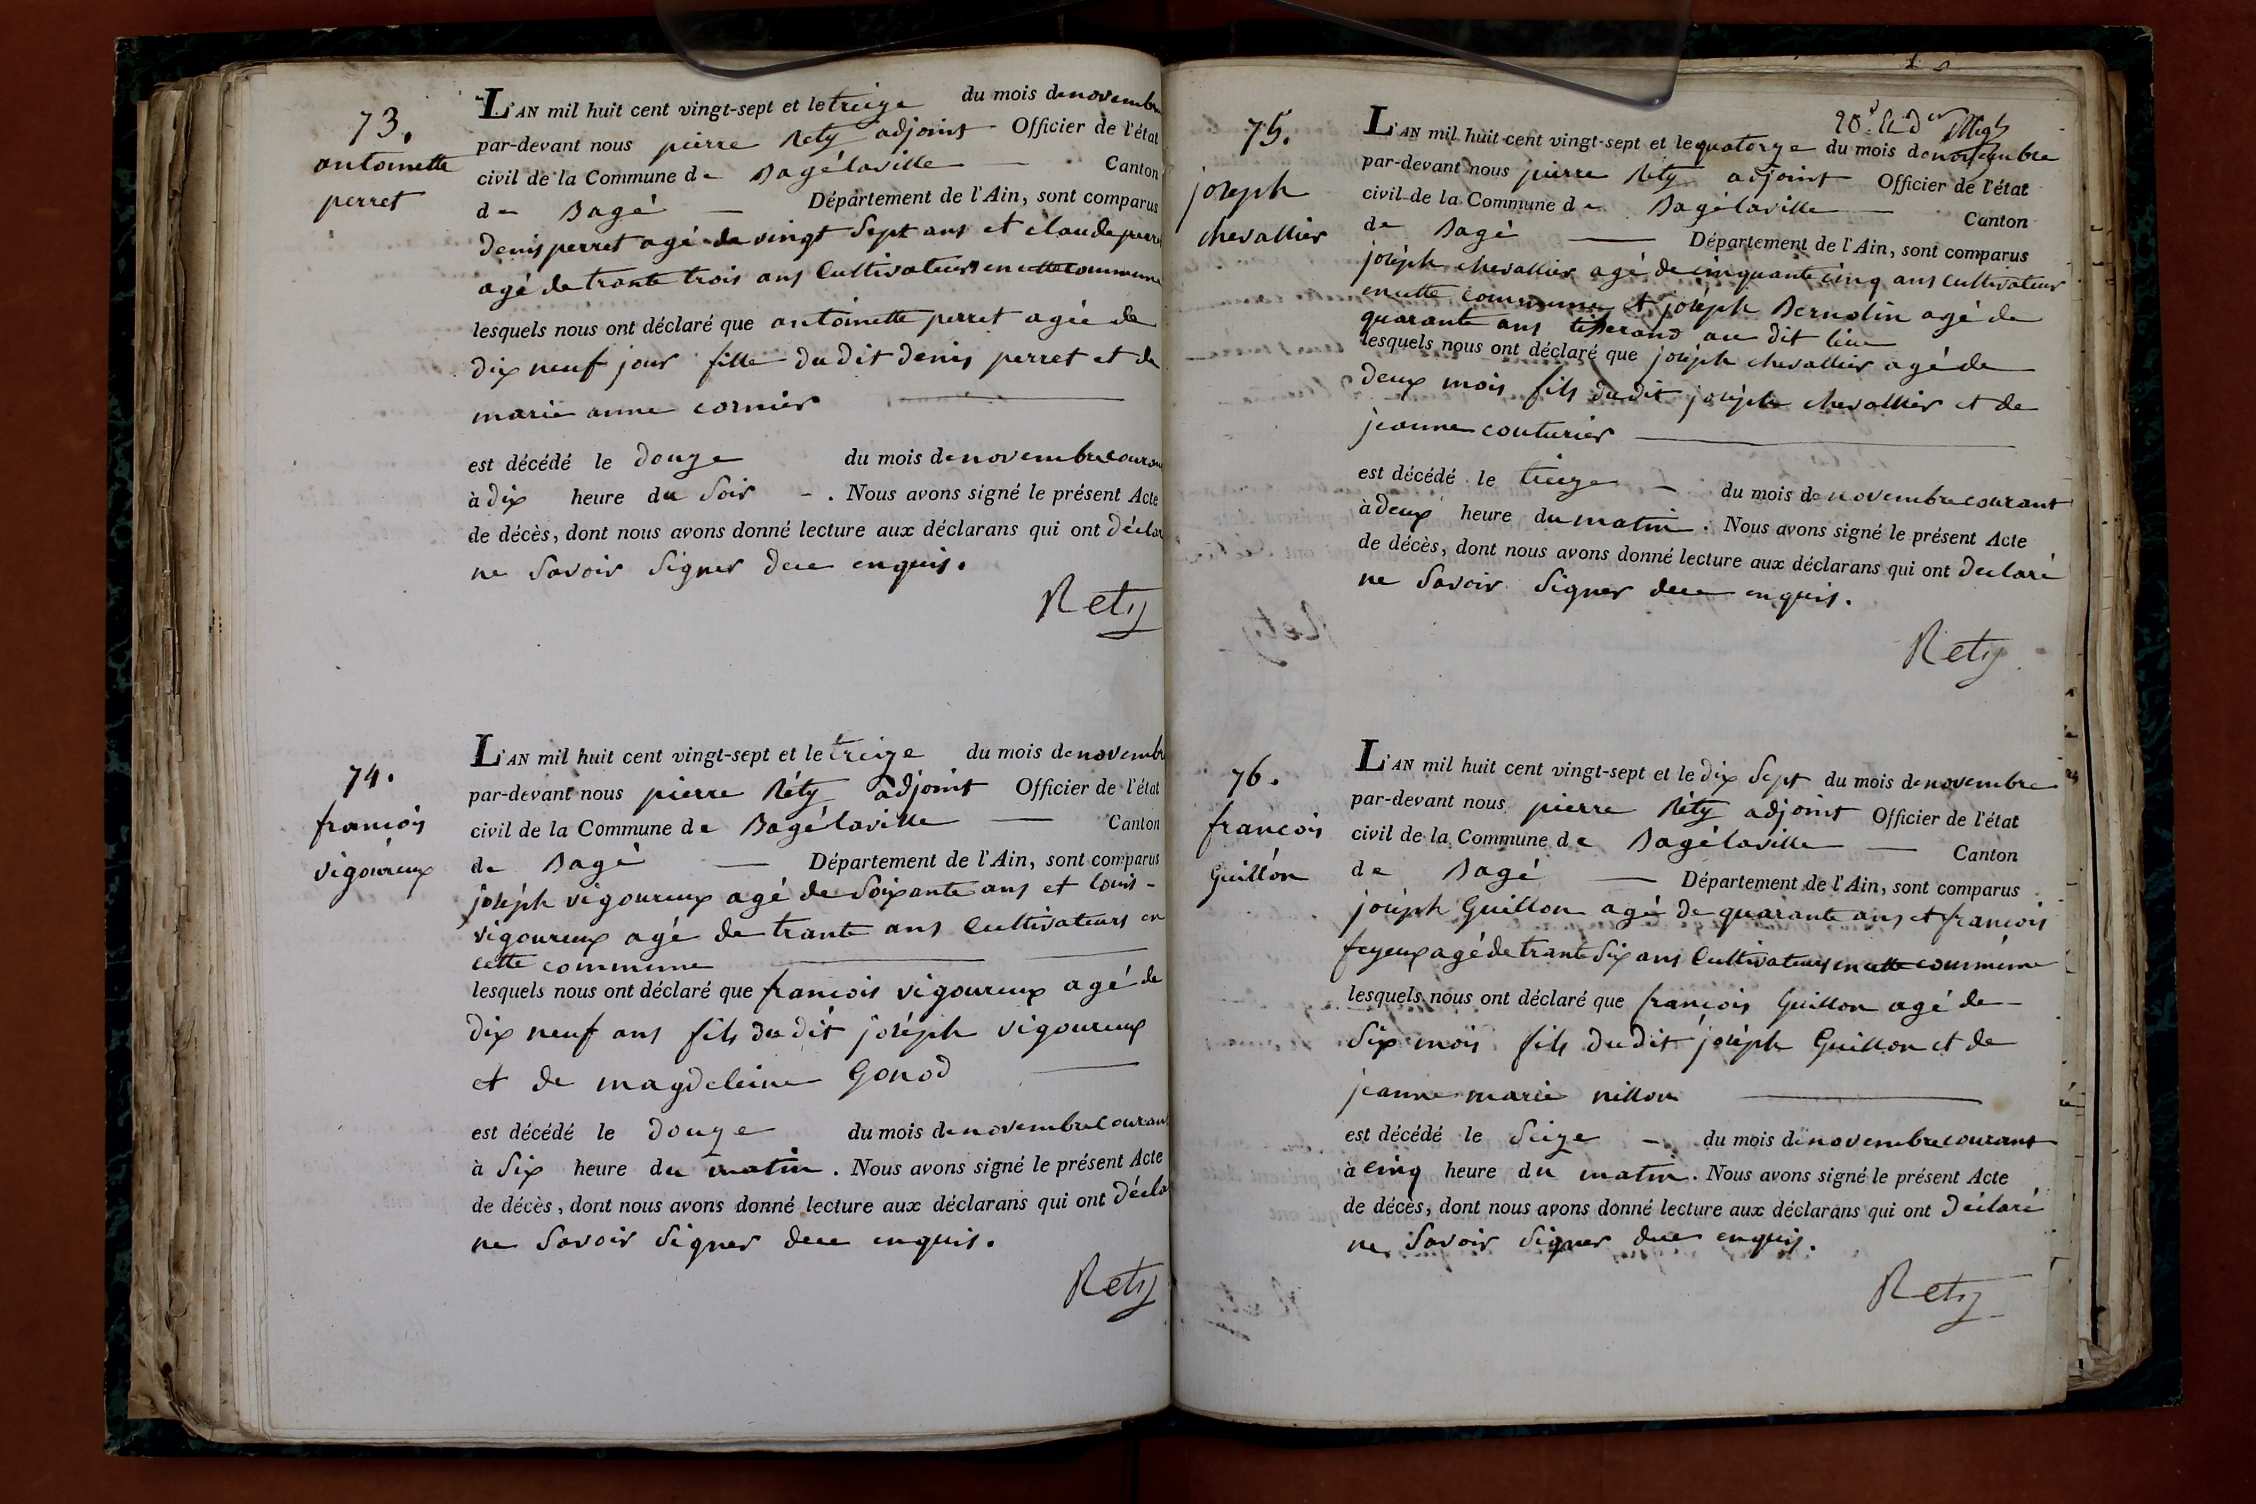 73.
antoinette
perret
L'AN mil huit cent vingt-sept et le treize du mois de novembre
par-devant nous pierre Réty adjoint Officier de l'état
civil de la Commune de Bagélaville — Canton
de Bagé — Département de l'Ain, sont comparus
denis perret agé de vingt Sept ans et claude perret
agé de trante trois ans Cultivateurs en cette commune
lesquels nous ont déclaré que antoinette perret agée de
dix neuf jour fille du dit denis perret et de
marie anne cornier
est décédé le douze du mois de novembre courant
à dix heure du Soir - . Nous avons signé le présent Acte
de décès, dont nous avons donné lecture aux déclarans qui ont déclaré
ne Savoir Signer de ce enquis.
Rety
74.
francois
vigoureux
L'AN mil huit cent vingt-sept et le treize du mois de novembre
par-devant nous pierre Réty adjoint Officier de l'état
civil de la Commune de Bagélaville — Canton
de Bagé — Département de l'Ain, sont comparus
joséph vigoureux agé de Soixante ans et louis -
vigoureux agé de trante ans Cultivateurs en
cette commune
lesquels nous ont déclaré que francois vigoureux agé de
dix neuf ans fils du dit joséph vigoureux
et de magdeleine Gonod
est décédé le douze du mois de novembre Courant
à Six heure du matin . Nous avons signé le présent Acte
de décès, dont nous avons donné lecture aux déclarans qui ont déclaré
ne Savoir Signer de ce enquis.
Rety
75.
joseph
chevallier
L'AN mil huit cent vingt-sept et le quatorze du mois de novembre
par-devant nous pierre Réty adjoint Officier de l'état
civil de la Commune de Bagélaville — Canton
de Bagé — Département de l'Ain, sont comparus
joséph chevallier agé de cinquante cinq ans cultivateur
en cette commune et joséph Bernolin agé de
quarante ans tisserand au dit lieu
lesquels nous ont déclaré que joséph chevallier agé de
deux mois fils du dit joséph chevallier et de
jeanne couturier
est décédé le treize - du mois de novembre courant
à deux heure du matin . Nous avons signé le présent Acte
de décès, dont nous avons donné lecture aux déclarans qui ont déclaré
ne Savoir Signer de ce enquis.
Rety
76.
francois
Guillon
L'AN mil huit cent vingt-sept et le dix Sept du mois de novembre
par-devant nous pierre Réty adjoint Officier de l'état
civil de la Commune de Bagélaville — Canton
de Bagé — Département de l'Ain, sont comparus
joséph Guillon agé de quarante ans et francois
feyeux agé de trante Six ans Cultivateurs en cette commune
lesquels nous ont déclaré que françois Guillon agé de -
Six mois fils du dit joséph Guillon et de
jeanne marie nillon
est décédé le Seize - du mois de novembre courant
à cinq heure du matin . Nous avons signé le présent Acte
de décès, dont nous avons donné lecture aux déclarans qui ont déclaré
ne Savoir Signer de ce enquis.
Rety